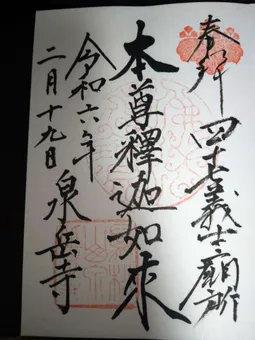 奉拝 四十七義士廟所
本尊釋迦如來
令和六年
二月十九日
泉岳寺